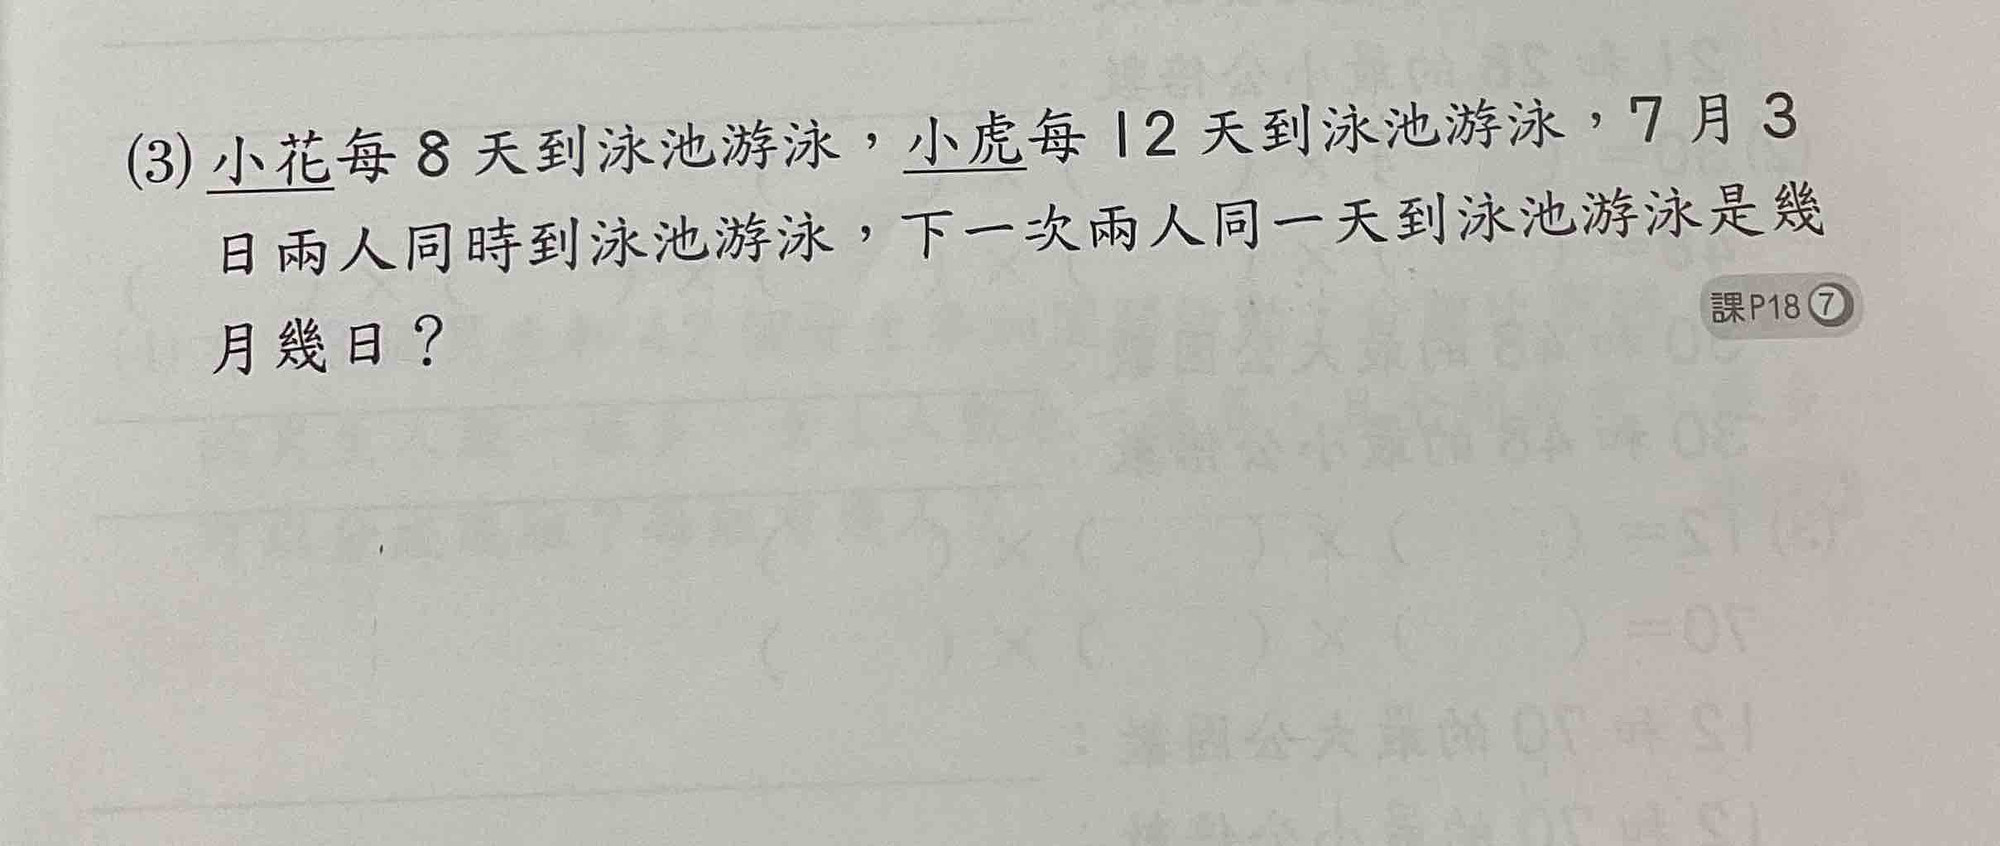 (3) 小花每 8 天到泳池游泳，小虎每 12 天到泳池游泳，7 月 3
日兩人同時到泳池游泳，下一次兩人同一天到泳池游泳是幾
月幾日？
課P18⑦